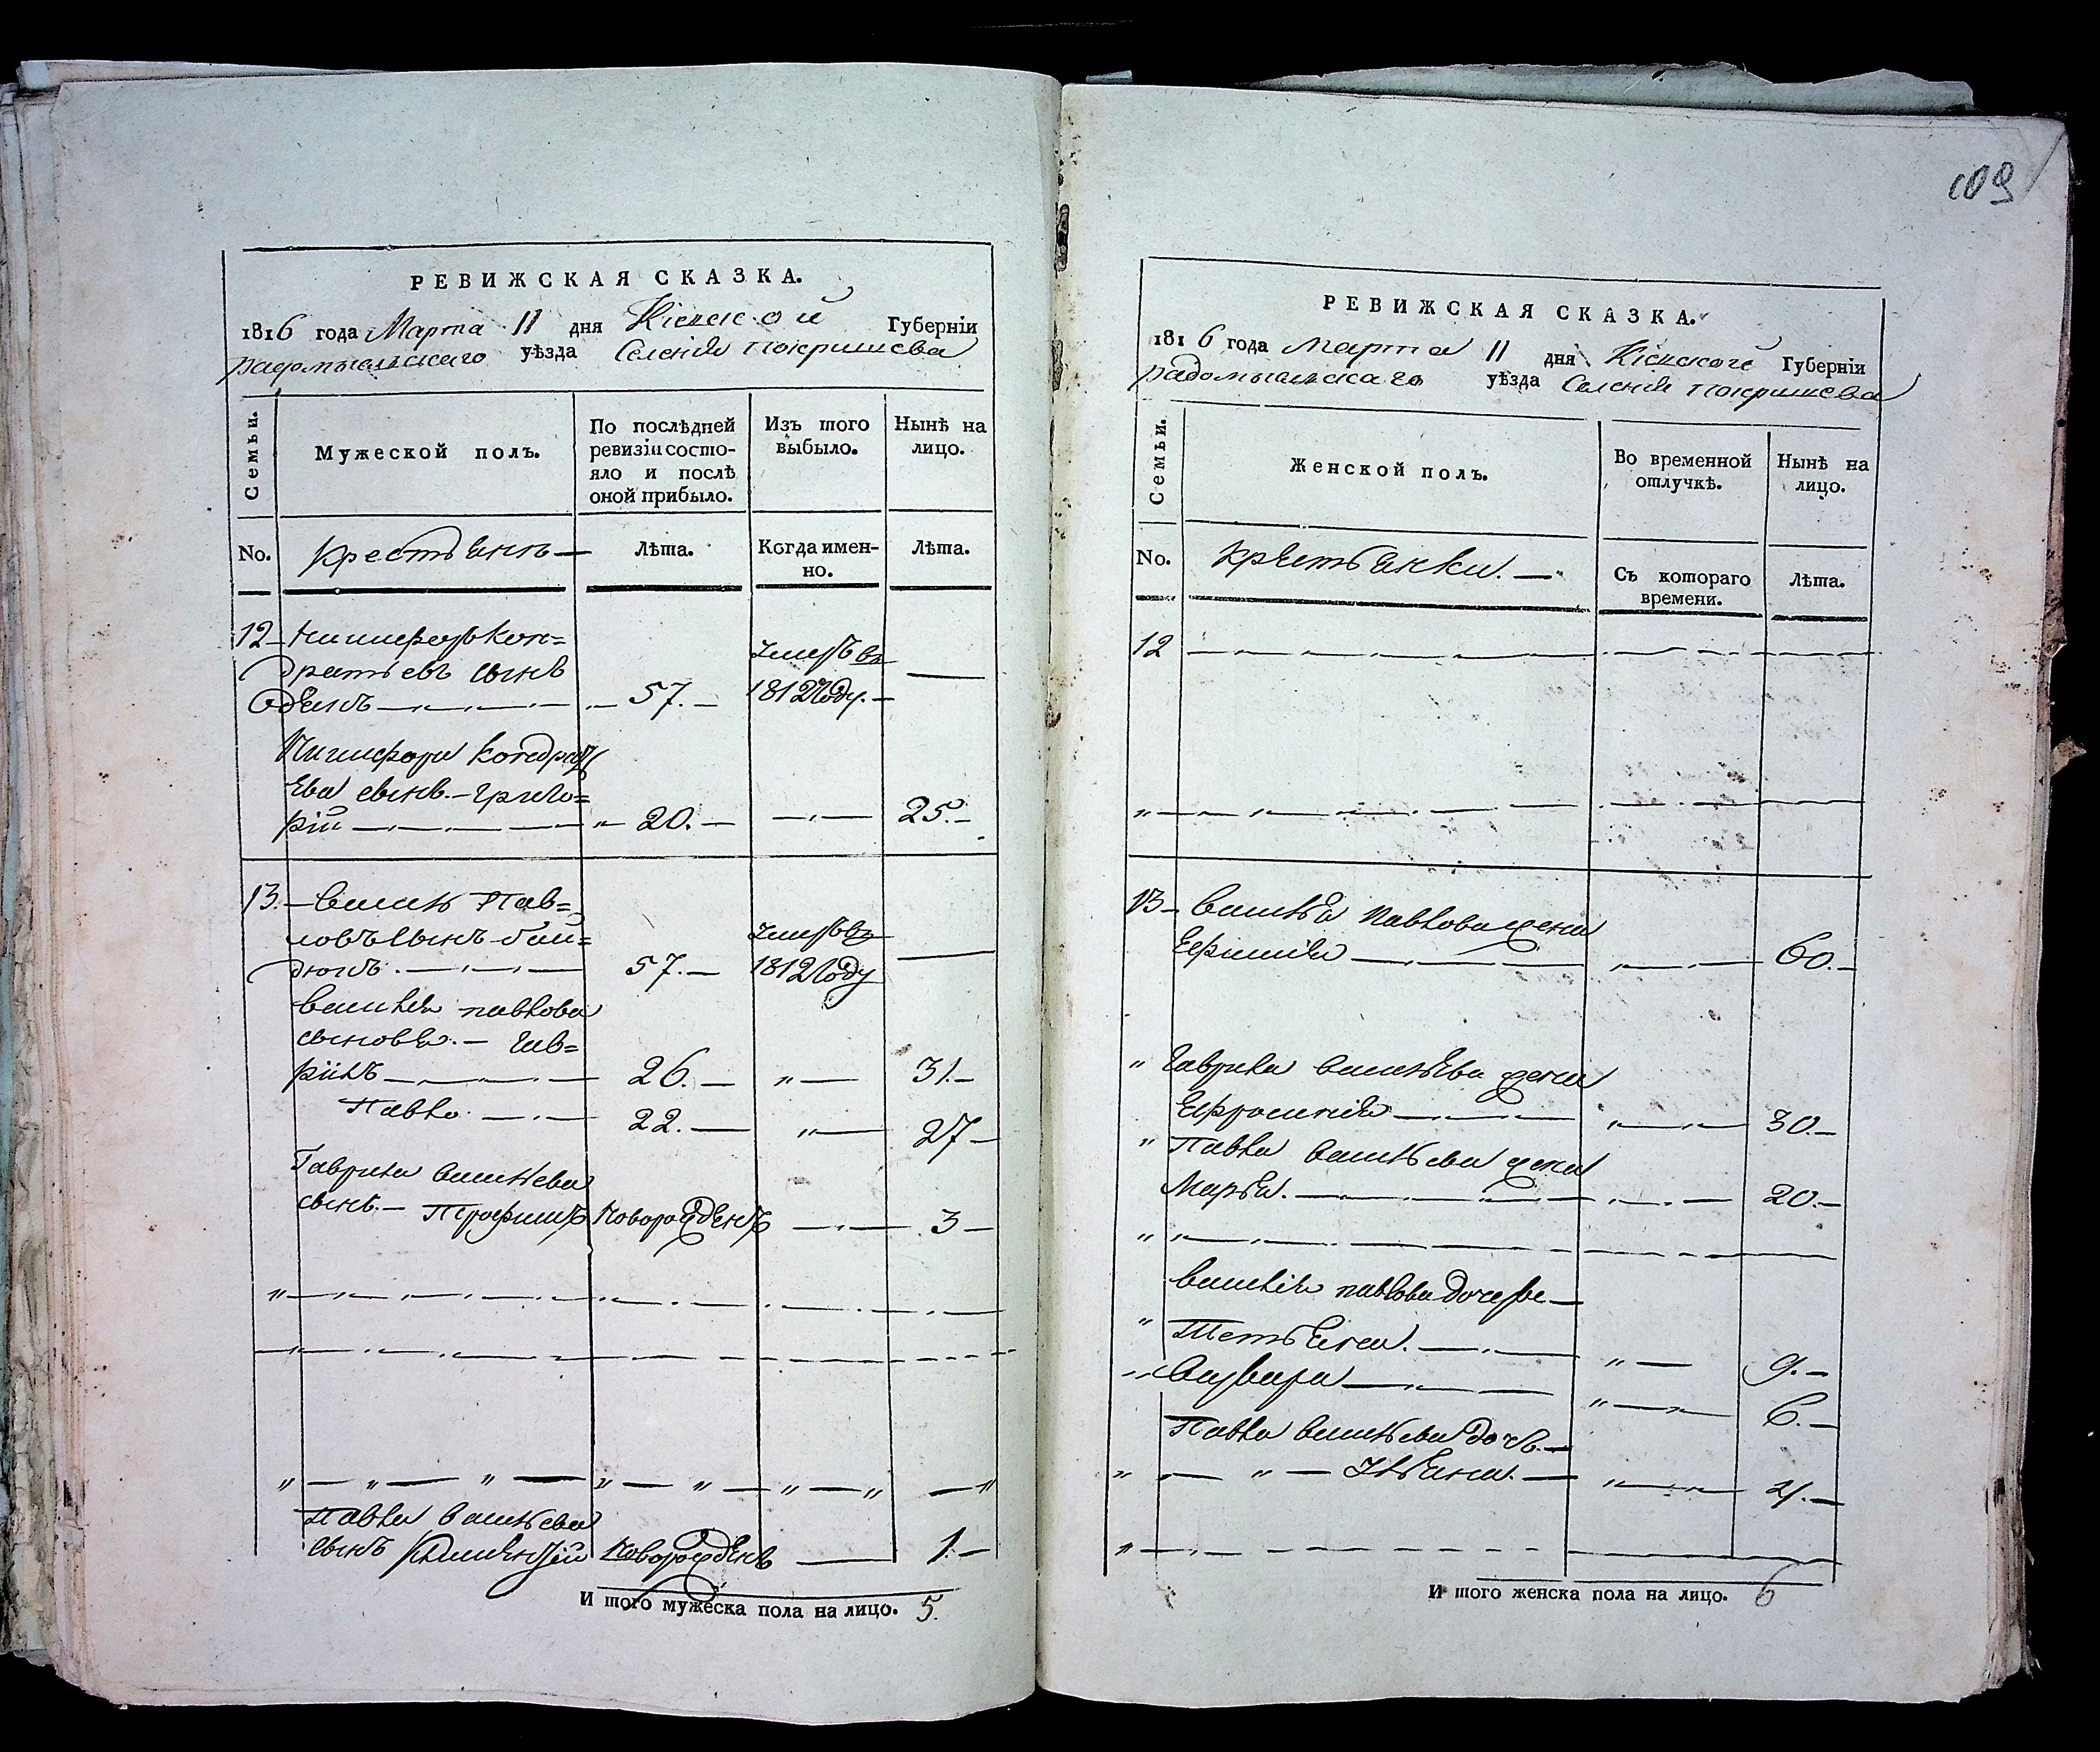 109
РЕВИЖСКАЯ СКАЗКА.
1816 года Марта 11 дня Кіевской Губерніи
радомысльскаго уѣзда Селенія покришева
Семьи.
Мужеской полъ.
По послѣдней ревизіи состо-
яло и послѣ
оной прибыло.
Изъ того
выбыло.
Нынѣ на
лицо.
No.
крестьянъ
Лѣта.
Когда имен-
но.
Лѣта.
12 Никифоръ кон=
дратьевъ сынъ
57. умеръ въ 1812 году.
Никифора кондрать
ева сынъ. Григо=
рій 20. 25.
13. Василь Пав=
ловъ сынъ
57. умеръ въ 1812 году
Василія павлова
сыновья. Гав=
рiилъ 26. 31.
Павло 22. 27
Гаврила Васильева
сынъ. Трофимъ Новорожденъ 3
Павла Васильева
сынъ Новорожденъ 1.
И того мужеска пола на лицо. 5.
РЕВИЖСКАЯ СКАЗКА.
1816 года Марта 11 дня Кіевской Губерніи
радомысльскаго уѣзда Селенія покришева
Семьи.
Женской полъ.
Во временной
отлучкѣ.
Нынѣ на
лицо.
No.
крестьянки.
Съ котораго
времени.
Лѣта.
12
13 Василья Павлова жена
Ефимія 60.
Гаврила Васильева жена
Ефросинія 30.
Павла Васильева жена
Марья. 20.
Василія павлова дочери
Тетьяна. 9.
Варвара 6.
Павла Васильева дочь
Ульяна. 4.
И того женска пола на лицо. 6